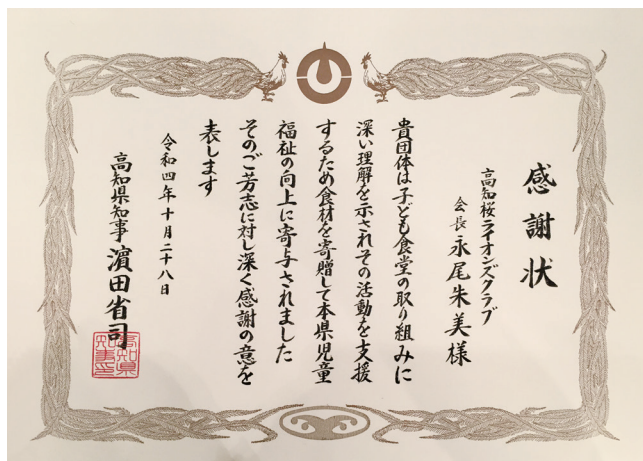 感謝状
高知桜ライオンズクラブ
会長 永尾朱美様
貴団体は子ども食堂の取り組みに
深い理解を示されその活動を支援
するため食材を寄贈して本県児童
福祉の向上に寄与されました
そのご芳志に対し深く感謝の意を
表します
令和四年十月二十八日
高知県知事 濵田省司
高知県
知事之印